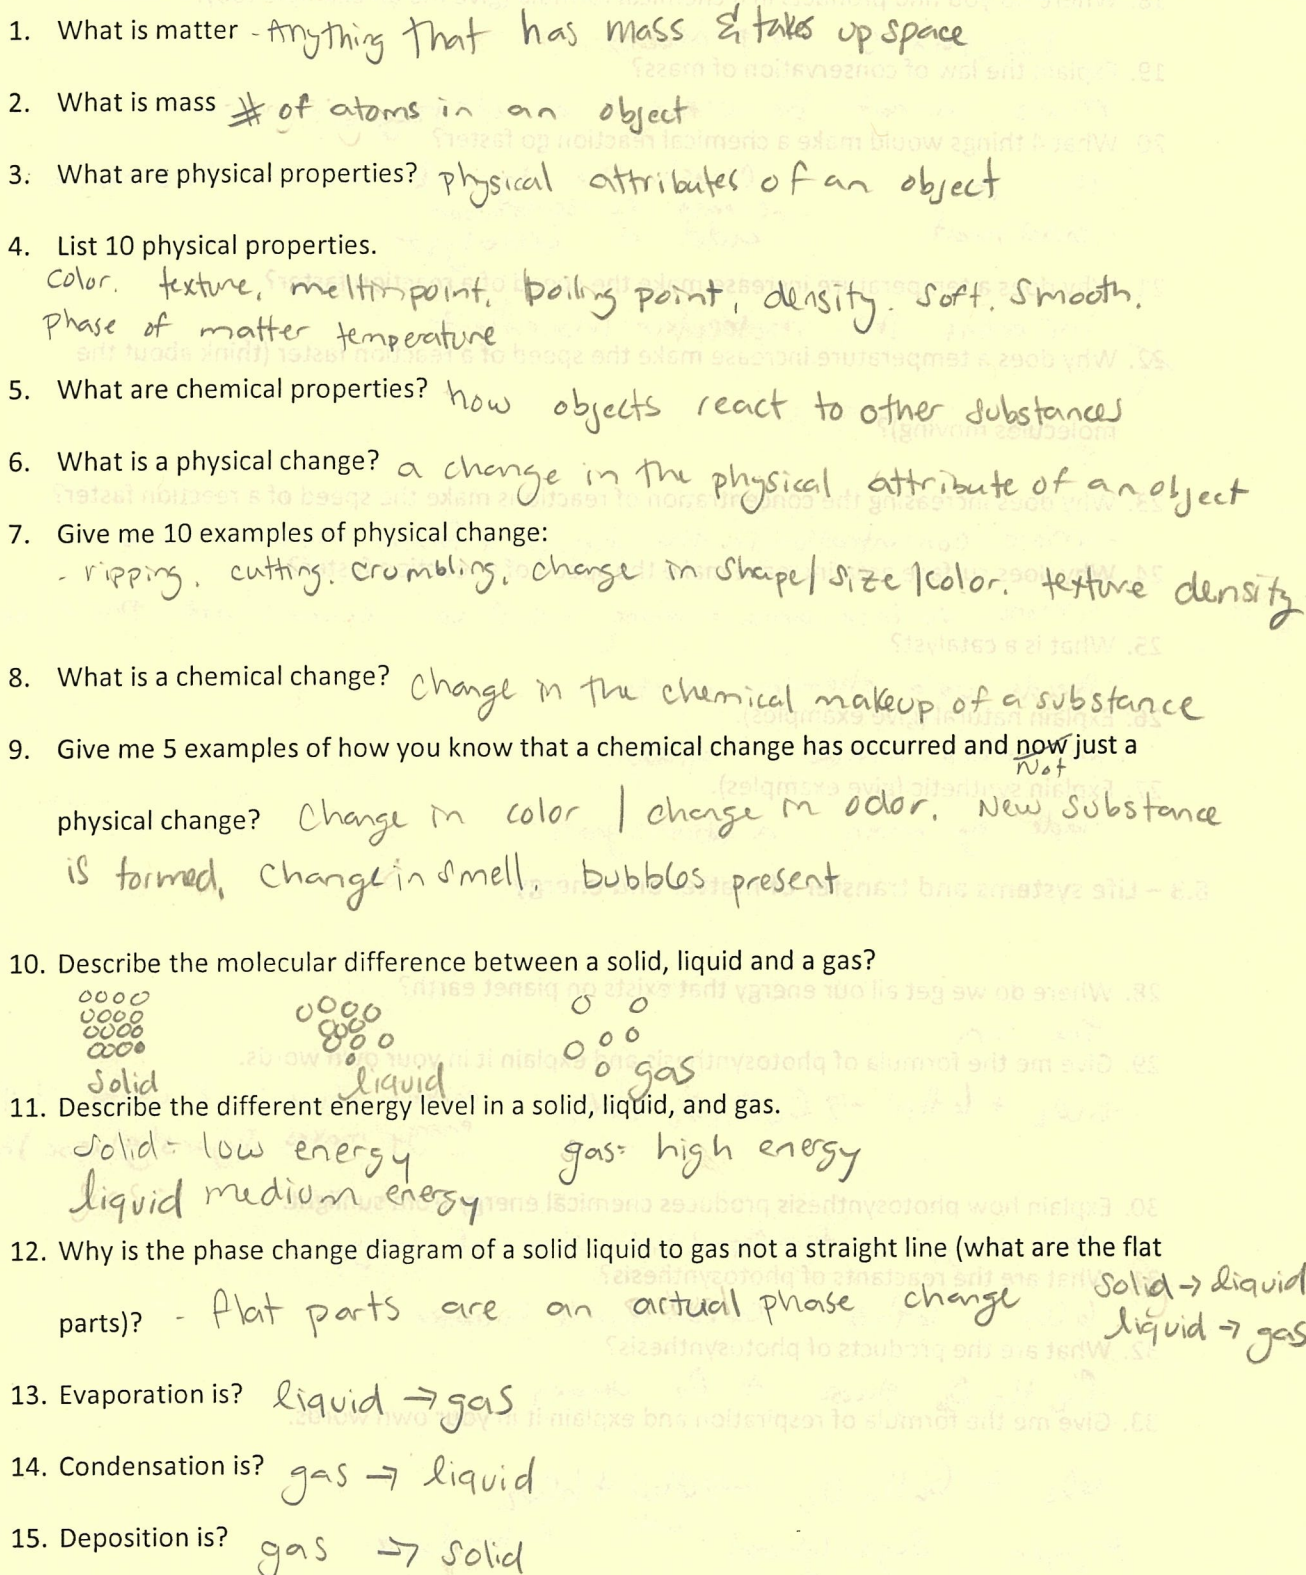 1. What is matter - Anything that has mass & takes up space
2. What is mass # of atoms in an object
3. What are physical properties? physical attributes of an object
4. List 10 physical properties.
color. texture, meltinpoint, boiling point, density. soft. smooth.
phase of matter temperature
5. What are chemical properties? how objects react to other substances
6. What is a physical change? a change in the physical attribute of an object
7. Give me 10 examples of physical change:
- ripping, cutting, crumbling, change in shape/size/color. texture density
8. What is a chemical change? change in the chemical makeup of a substance
9. Give me 5 examples of how you know that a chemical change has occurred and now just a
Not
physical change? Change in color / change in odor. New substance
is formed, change in smell, bubbles present
10. Describe the molecular difference between a solid, liquid and a gas?
solid liquid gas
11. Describe the different energy level in a solid, liquid, and gas.
solid= low energy gas= high energy
liquid medium energy
12. Why is the phase change diagram of a solid liquid to gas not a straight line (what are the flat
parts)? - flat parts are an actual phase change solid → liquid
liquid → gas
13. Evaporation is? liquid → gas
14. Condensation is? gas → liquid
15. Deposition is? gas → solid